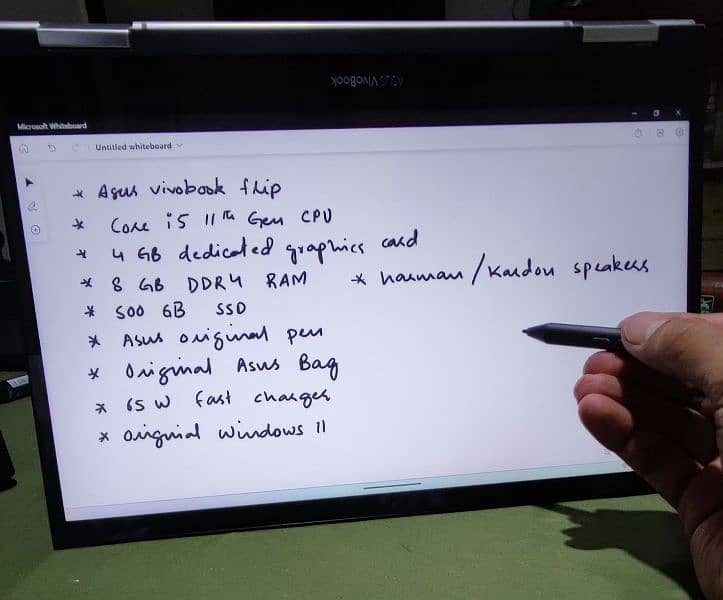 ASUS VivoBook
Microsoft Whiteboard
Untitled whiteboard
* Asus vivobook flip
* Core i5 11th Gen CPU
* 4 GB dedicated graphics card
* 8 GB DDR4 RAM * harman/Kardon speakers
* 500 GB SSD
* Asus original pen
* Original Asus Bag
* 65 W fast charger
* original windows 11